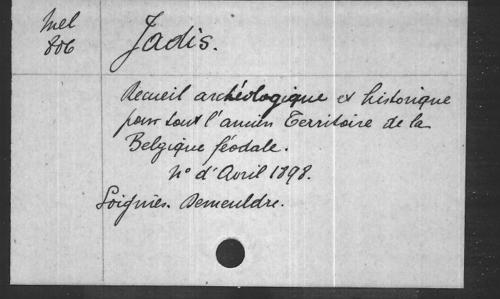 Mel
806
Jadis.
Recueil archéologique et historique
pour tout l'ancien Territoire de la
Belgique féodale.
N° d'Avril 1898.
Soignies. Demeuldre.